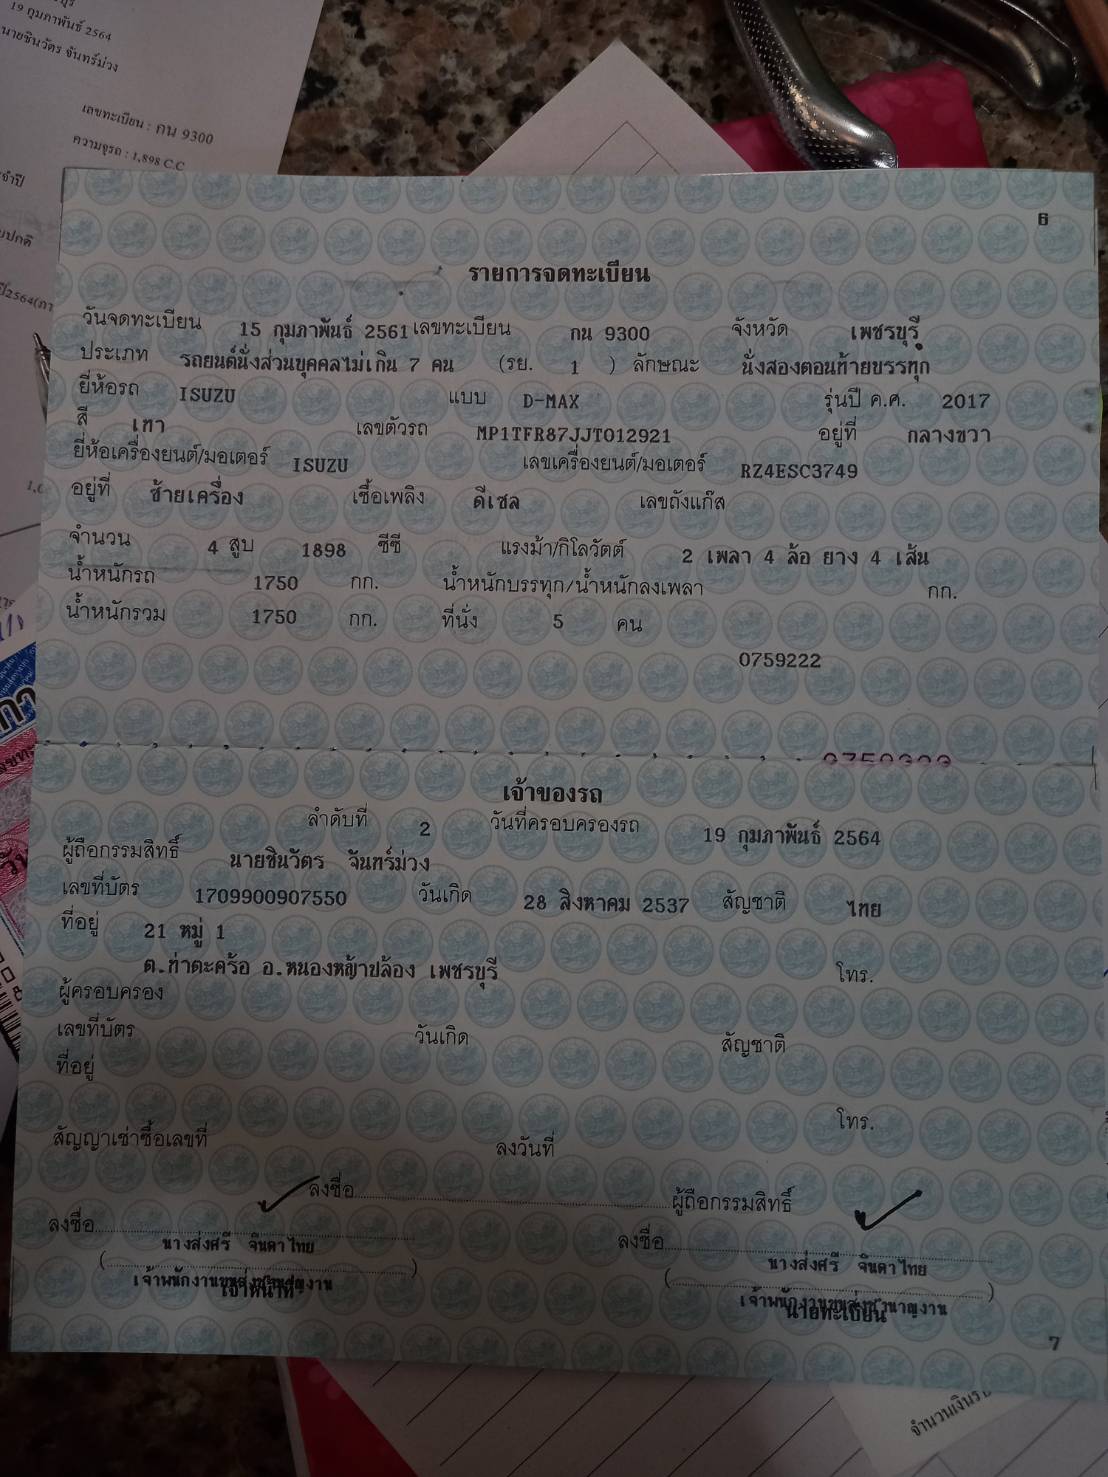 19 กุมภาพันธ์ 2564
นายชินวัตร จันทร์ม่วง
เลขทะเบียน : กน 9300
ความจุรถ : 1,898 C.C
6
รายการจดทะเบียน
วันจดทะเบียน 15 กุมภาพันธ์ 2561 เลขทะเบียน กน 9300 จังหวัด เพชรบุรี
ประเภท รถยนต์นั่งส่วนบุคคลไม่เกิน 7 คน (รย. 1 ) ลักษณะ นั่งสองตอนท้ายบรรทุก
ยี่ห้อรถ ISUZU แบบ D-MAX รุ่นปี ค.ศ. 2017
สี เทา เลขตัวรถ MP1TFR87JJT012921 อยู่ที่ กลางขวา
ยี่ห้อเครื่องยนต์/มอเตอร์ ISUZU เลขเครื่องยนต์/มอเตอร์ RZ4ESC3749
อยู่ที่ ซ้ายเครื่อง เชื้อเพลิง ดีเซล เลขถังแก๊ส
จำนวน 4 สูบ 1898 ซีซี แรงม้า/กิโลวัตต์ 2 เพลา 4 ล้อ ยาง 4 เส้น
น้ำหนักรถ 1750 กก. น้ำหนักบรรทุก/น้ำหนักลงเพลา กก.
น้ำหนักรวม 1750 กก. ที่นั่ง 5 คน
0759222
เจ้าของรถ
ลำดับที่ 2 วันที่ครอบครองรถ 19 กุมภาพันธ์ 2564
ผู้ถือกรรมสิทธิ์ นายชินวัตร จันทร์ม่วง
เลขที่บัตร 1709900907550 วันเกิด 28 สิงหาคม 2537 สัญชาติ ไทย
ที่อยู่ 21 หมู่ 1
ต.ท่าตะคร้อ อ.หนองหญ้าปล้อง เพชรบุรี โทร.
ผู้ครอบครอง
เลขที่บัตร วันเกิด สัญชาติ
ที่อยู่
โทร.
สัญญาเช่าซื้อเลขที่ ลงวันที่
ลงชื่อ ผู้ถือกรรมสิทธิ์
ลงชื่อ ลงชื่อ
นางส่งศรี จินดาไทย นางส่งศรี จินดาไทย
เจ้าพนักงานขนส่งชำนาญงาน เจ้าพนักงานขนส่งชำนาญงาน
เจ้าหน้าที่ นายทะเบียน
7